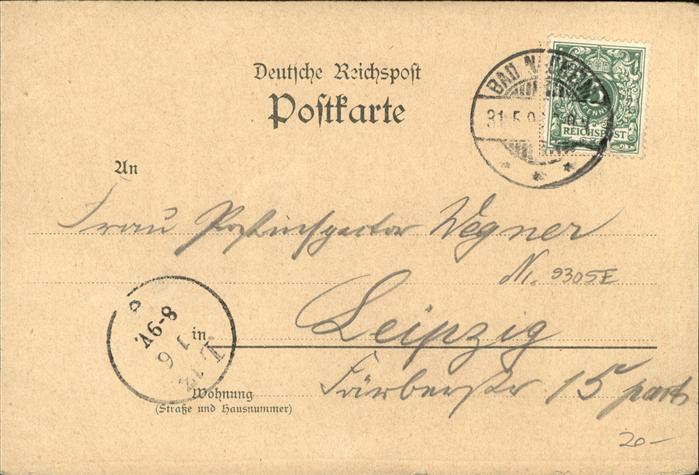 Deutsche Reichspost
Postkarte
BAD
31.5.9
REICHSPOST
An
Frau Postinspector Wegner
Nr. 9305E
in Leipzig
8-9V.
1 6
L
Wohnung
(Straße und Hausnummer)
Färberstr 15 part
20-